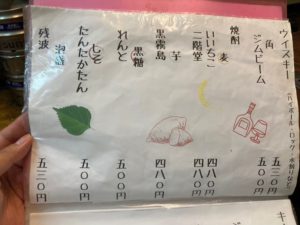 ウイスキー(ハイボール・ロック・水割りなど)
角 五三〇円
ジムビーム 五〇〇円
焼酎
麦
いいちこ 四八〇円
二階堂 四八〇円
芋
黒霧島 四八〇円
黒糖
れんと 五〇〇円
しそ
たんたかたん 五〇〇円
泡盛
残波 五三〇円